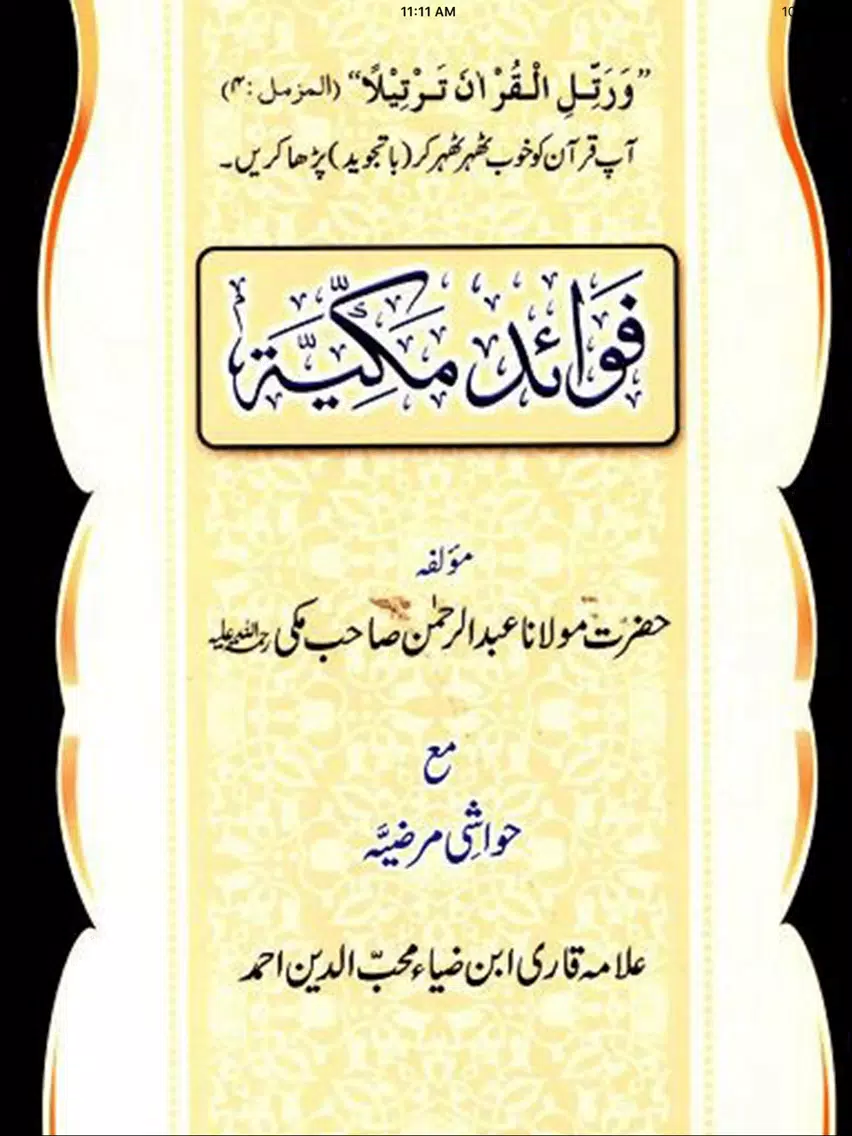 11:11 AM
10
”وَرَتِّلِ الْقُرْاٰنَ تَرْتِيْلًا“ (المزمل:۴)
آپ قرآن کو خوب ٹھہر ٹھہر کر (باتجوید) پڑھا کریں۔
فَوَائِد مَكِّيَّة
مؤلفہ
حضرت مولانا عبدالرحمٰن صاحب مکی رحمۃاللہعلیہ
مع
حواشی مرضیّہ
علامہ قاری ابن ضیاء محبّ الدین احمد